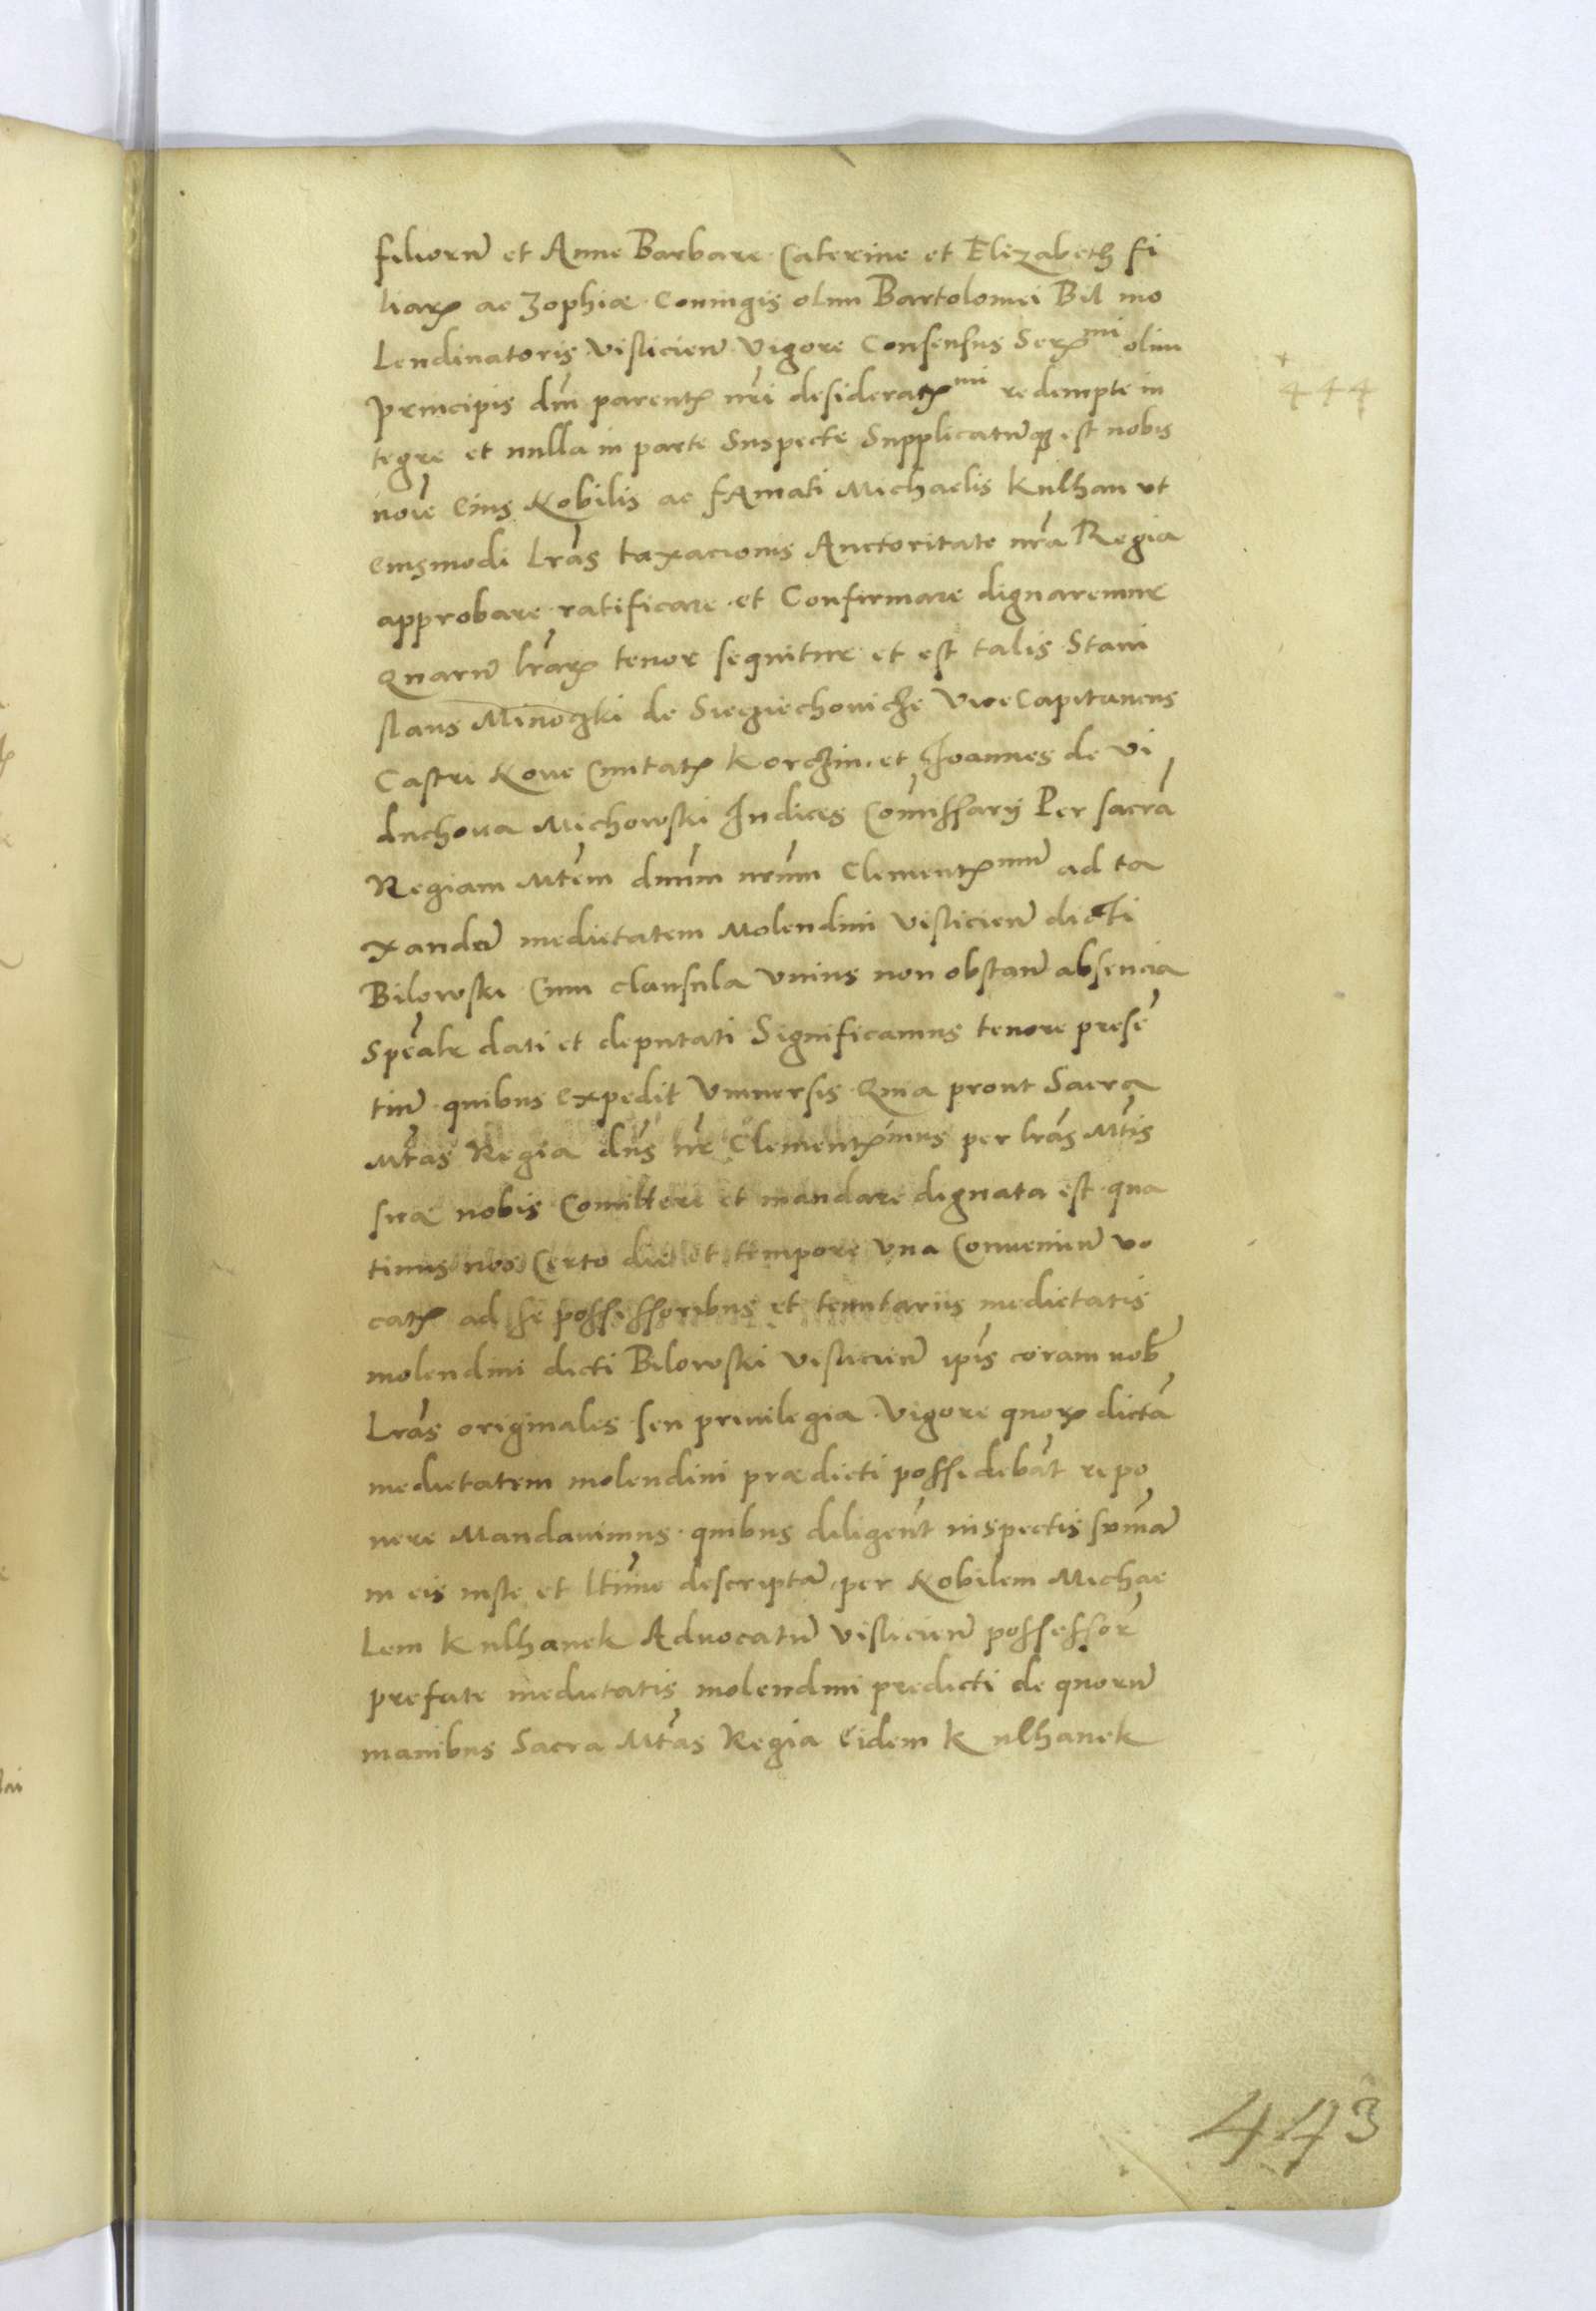 filiorū et Anne Barbare Caterine et Elizabeth fi
liarꝝ ac Zophiæ Coniugis olim Bartolomei Bil mo
Lendinatoris Visliciēn Vigore Consensus Serꝝmi olim
Principis dni parentꝭ nri desideratꝭmi redempte in
tegre et nulla in parte Suspecte Supplicatūqꝫ est nobis
noīe Eius Nobilis ac fAmati Michaelis Kulhan ut
Eiusmodi lrās taxacionis Auctoritate nrā Regia
approbare ratificare et Confirmare dignaremur
Quarū lrārꝝ tenor sequitur et est talis Stani
slaus Minoczki de Sieciechowicze Vice Capitaneus
Castri Noue Ciuitatꝭ Korczin. et Joannes de Vi
duchowa Michowski Judices Com̄issarij Per sacrā
Regiam Mtēm dnūm nrūm Clementꝭmum ad ta
xandā medietatem Molendini Visliciēn dicti
Bilowski Cum clausula Vnius non obstan̄ absencia
Speālr dati et deputati Significamus tenore presē
tiū quibus Expedit Vniuersis Quia prout Sacra
Mtās Regia dn̄s nr̄ Clementꝭimus per lrās Mtis
suæ nobis Comittere et mandare dignata est qua
tinus nos Certo die et tempore Vna Conuenien̄ vo
catꝭ ad se possessoribus et tenutariis medietatis
molendini dicti Bilowski Visliciēn ipīs coram nob̄
Lrās originales seu priuilegia Vigore quorꝝ dictā
medietatem molendini prædicti possidebāt repo
nere Mandauimus quibus diligent̄ inspectis sum̄ā
in eis iuste et ltīme descriptā per Nobilem Michae
Lem Kulhanek Aduocatū Visliciēn possessor̄
prefate medietatis molendini predicti de quorū
manibus Sacra Mtās Regia Eidem Kulhanek
444
443